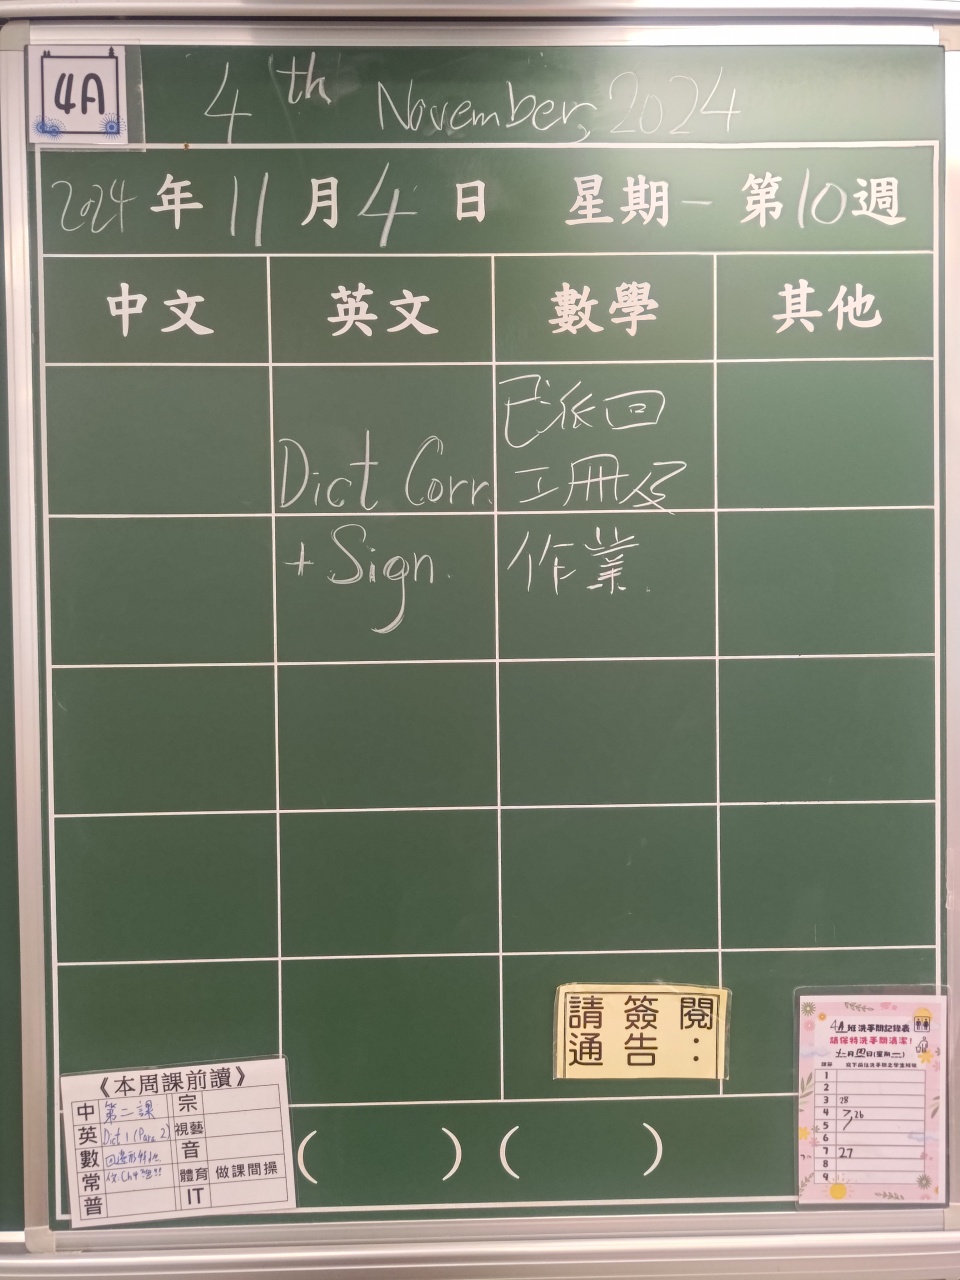 4A
4th November, 2024
2024年11月4日 星期一 第10週
中文 英文 數學 其他
Dict Corr.
+ Sign.
已派回
工冊及
作業.
請簽閱
通告：
( ) ( )
《本周課前讀》
中 第二課 宗
英 Dict 1 (Para 2) 視藝
數 音
常 體育 做課間操
普 IT
4A班洗手間記錄表
請保持洗手間清潔！
十一月四日(星期一)
1
2
3 28
4 7, 26
5
6
7 27
8
9